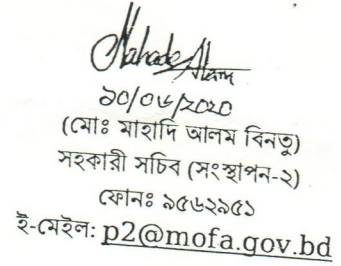 Mahade Alam
১০/০৬/২০২০
(মোঃ মাহাদি আলম বিনতু)
সহকারী সচিব (সংস্থাপন-২)
ফোনঃ ৯৫৬২৯৫১
ই-মেইল: p2@mofa.gov.bd